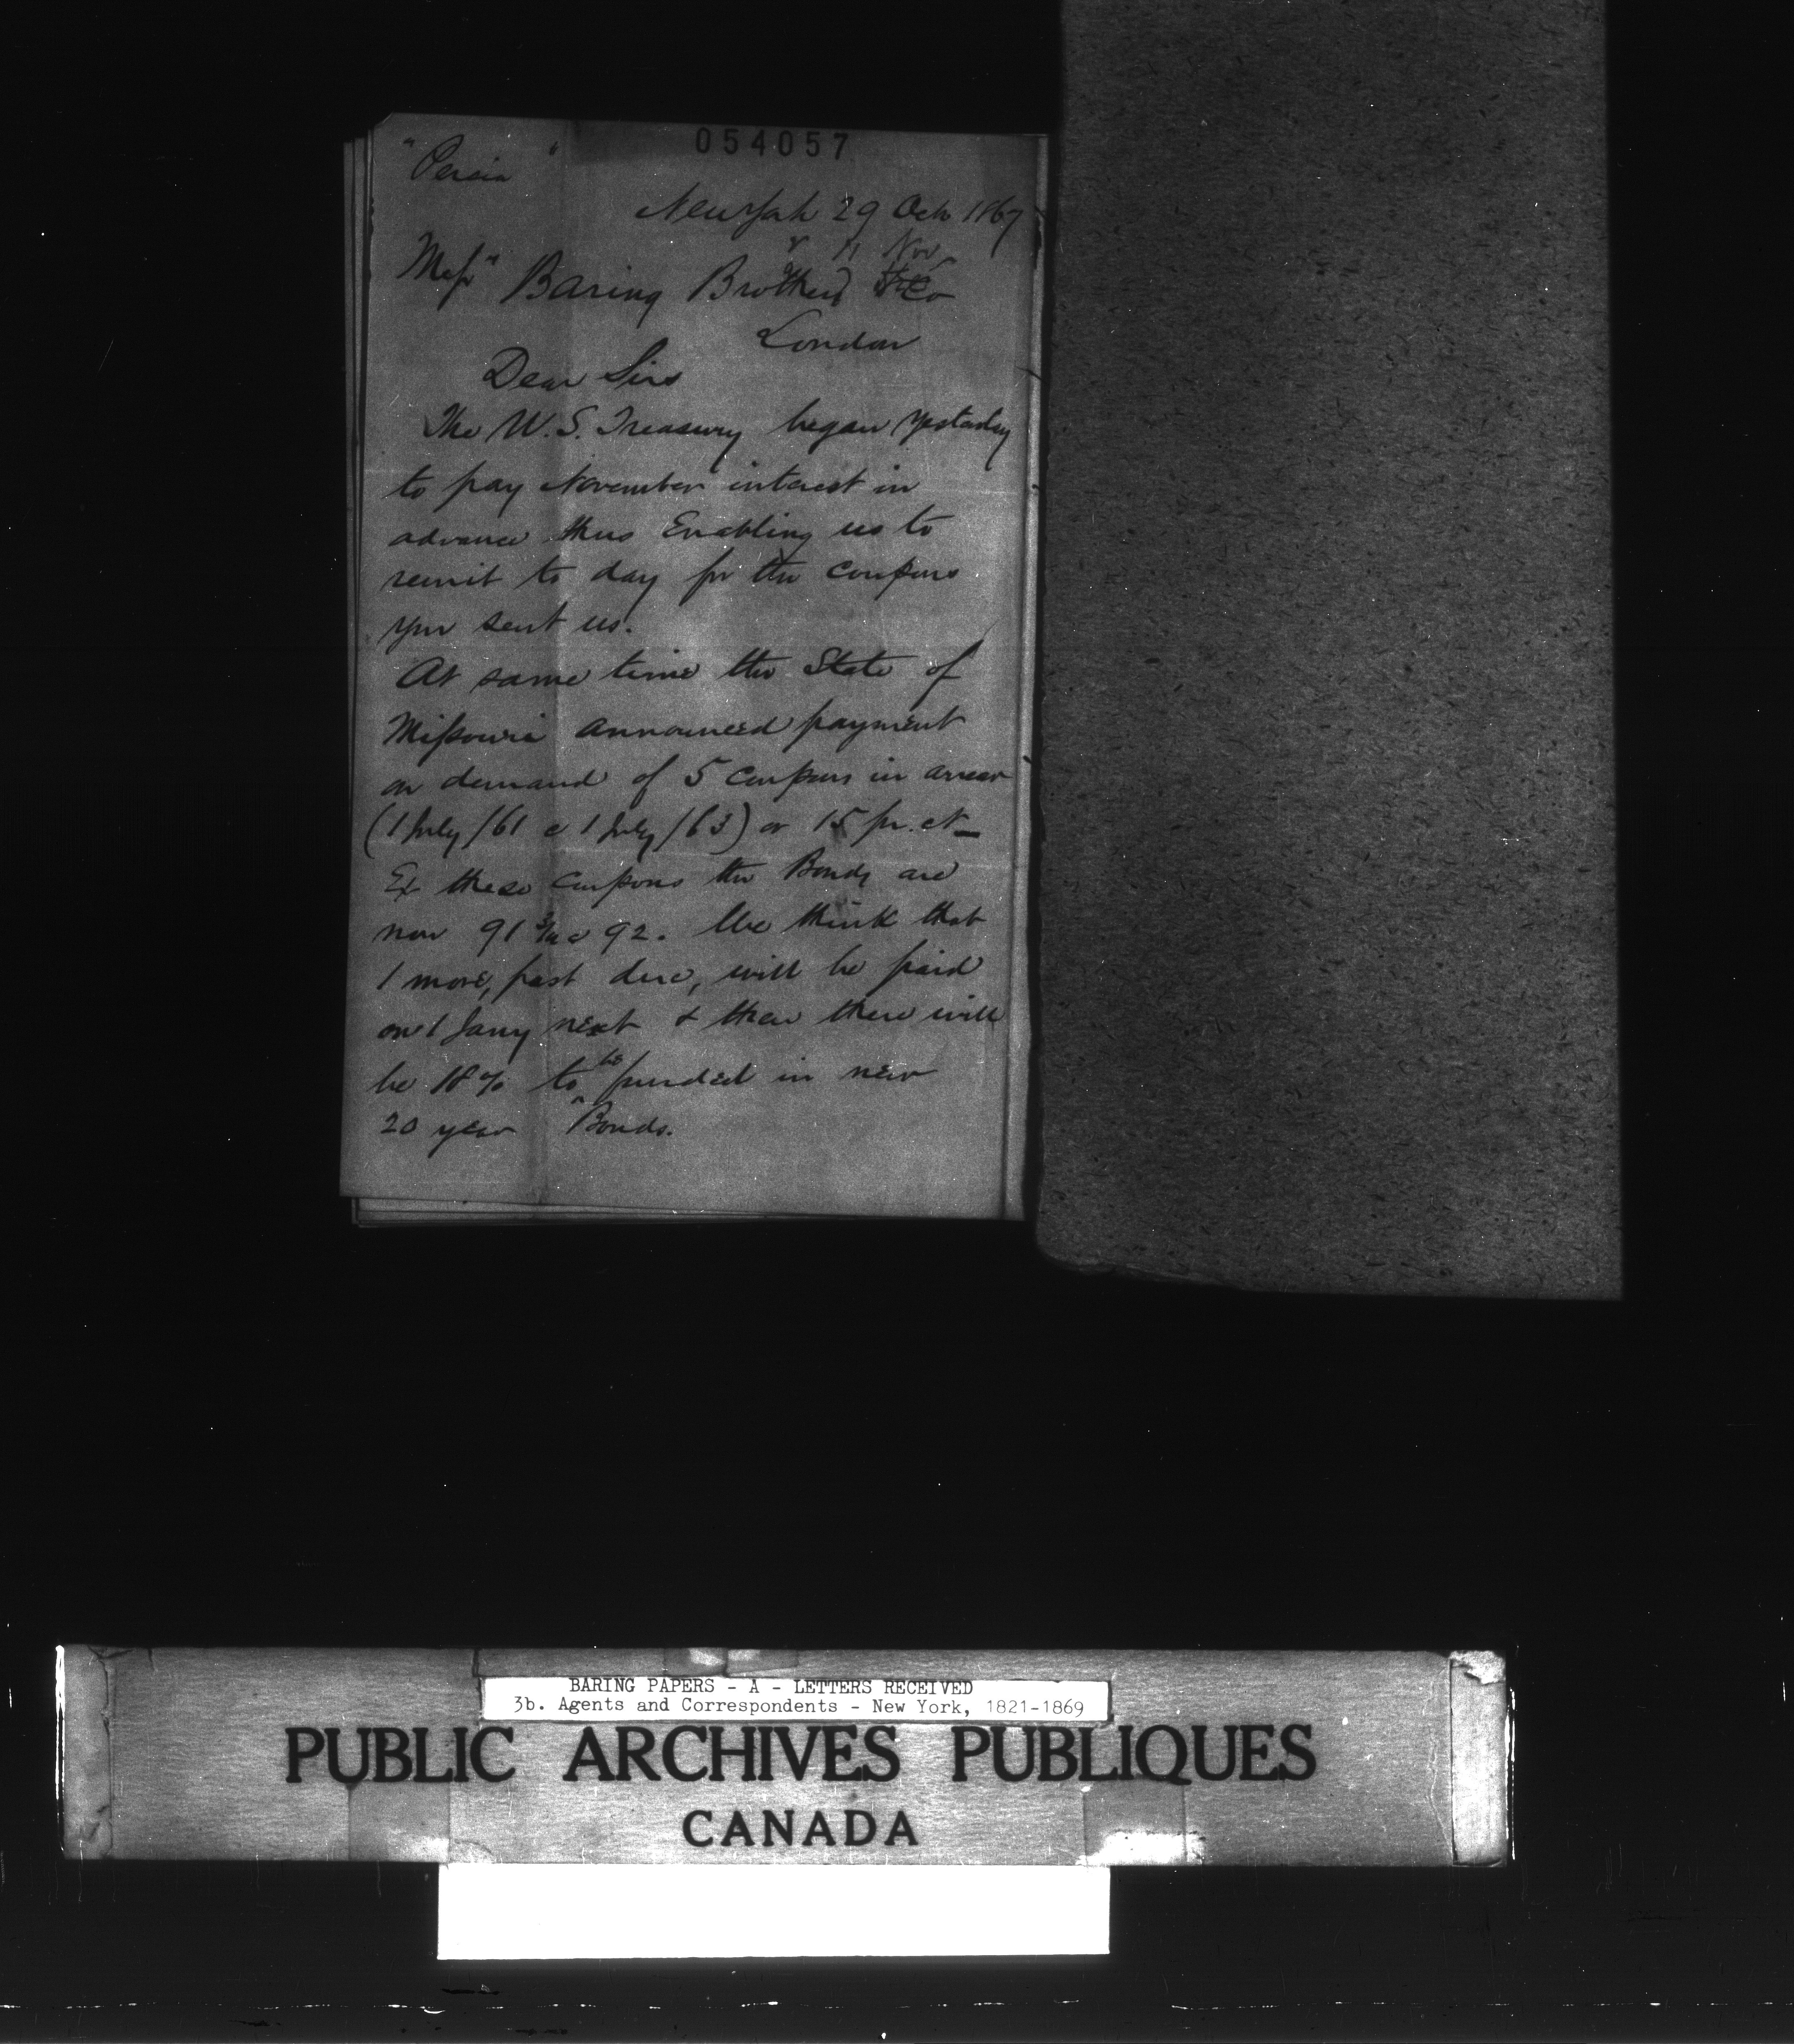 054057
"Persia"
New York 29 Oct 1867
r 11 Nov
Messrs Baring Brothers & Co
London
Dear Sirs
The U.S. Treasury began yesterday
to pay November interest in
advance thus Enabling us to
remit to day for the coupons
you sent us.
At same time the State of
Missouri announced payment
on demand of 5 Coupons in arrear
(1 July/61 a 1 July/63) or 15 pr. ct_
Ex these Coupons the Bonds are
now 91 3/4 a 92. We think that
1 more, past due, will be paid
on 1 Jany next & then there will
be 18% to be funded in new
20 year Bonds.
BARING PAPERS - A - LETTERS RECEIVED
3b. Agents and Correspondents - New York, 1821-1869
PUBLIC ARCHIVES PUBLIQUES
CANADA